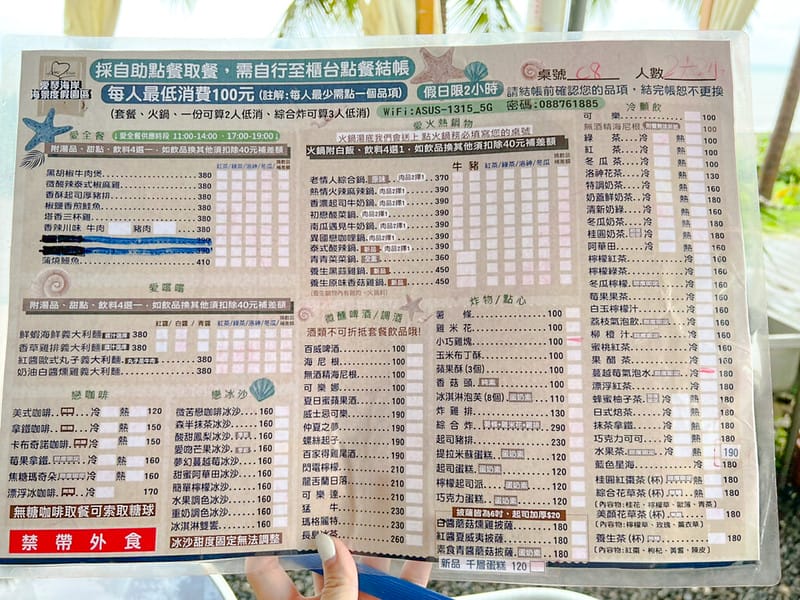 愛琴海岸
海景度假園區
採自助點餐取餐，需自行至櫃台點餐結帳
桌號 C8 人數
每人最低消費100元 (註解:每人最少需點一個品項)
假日限2小時
請結帳前確認您的品項，結完帳恕不更換
(套餐、火鍋、一份可算2人低消、綜合炸可算3人低消)
WiFi:ASUS-1315_5G 密碼:088761885
愛全餐 (愛全餐供應時段 11:00-14:00、17:00-19:00)
附湯品、甜點、飲料4選1．如飲品換其他須扣除40元補差額
黑胡椒牛肉煲 380
微酸辣泰式椒麻雞 380
香酥起司厚豬排 380
椒鹽香煎鮭魚 380
塔香三杯雞 380
香辣川味 牛肉 豬肉 380
蒲燒鰻魚 410
愛嚐嚐
附湯品、甜點、飲料4選1．如飲品換其他須扣除40元補差額
紅醬/白醬/青醬
鮮蝦海鮮義大利麵 380
香草雞排義大利麵 380
紅醬歐式丸子義大利麵 380
奶油白醬燻雞義大利麵 380
戀咖啡
美式咖啡 冷 熱 120
拿鐵咖啡 冷 熱 150
卡布奇諾咖啡 冷 熱 150
莓果拿鐵 冷 熱 160
焦糖瑪奇朵 冷 熱 160
漂浮冰咖啡 冷 170
無糖咖啡取餐可索取糖球
禁帶外食
戀冰沙
微苦戀咖啡冰沙 160
森半抹茶冰沙 160
酸甜鳳梨冰沙 160
愛吻芒果冰沙 160
夢幻蔓越莓冰沙 160
甜蜜阿華田冰沙 160
簡單檸檬冰沙 160
水果調色冰沙 160
重奶調色冰沙 160
冰淇淋雙饗 160
冰沙甜度固定無法調整
愛火熱鍋物
火鍋湯底我們會送上 點火鍋務必填寫您的桌號
火鍋附白飯、飲料4選1．如飲品換其他須扣除40元補差額
牛 豬
老情人綜合鍋 肉品2擇1 370
熱情火辣麻辣鍋 肉品2擇1 390
香濃起司牛奶鍋 肉品2擇1 390
初戀酸菜鍋 肉品2擇1 390
南瓜遇見牛奶鍋 肉品2擇1 390
異國戀咖哩鍋 肉品2擇1 390
泰式酸辣鍋 肉品2擇1 390
青青菜菜鍋 350
養生黑蒜雞鍋 450
養生原味香菇雞鍋 450
微醺啤酒/調酒
酒類不可折抵套餐飲品哦!
百威啤酒 100
海尼根 100
無酒精海尼根 100
可樂娜 100
夏日蜜蘋果酒 100
威士忌可樂 190
仲夏之夢 190
螺絲起子 190
百家得雞尾酒 190
閃電檸檬 200
龍舌蘭日落 210
可樂達 210
猛牛 230
瑪格麗特 230
長島冰茶 260
炸物/點心
薯條 100
雞米花 100
小巧雞塊 100
玉米布丁酥 100
蘋果酥(3個) 100
香菇頭 100
冰淇淋泡芙(8個) 110
炸雞排 130
綜合炸 290
起司豬排 230
提拉米蘇蛋糕 120
起司蛋糕 120
檸檬起司派 120
巧克力蛋糕 120
披薩皆為6吋，起司加厚$20
白醬蘑菇燻雞披薩 180
紅醬夏威夷披薩 180
素食青醬蘑菇披薩 180
新品 千層蛋糕 120
冷熱飲
可樂 100
無酒精海尼根 100
綠茶 冷 熱 100
紅茶 冷 熱 100
冬瓜茶 冷 熱 100
洛神花茶 冷 熱 130
特調奶茶 冷 熱 160
奶蓋鮮奶茶 冷 熱 180
清新奶綠 冷 熱 160
冬瓜奶茶 冷 熱 160
桂圓奶茶 冷 熱 160
阿華田 冷 熱 160
檸檬紅茶 160
檸檬綠茶 160
冬瓜檸檬 160
莓果果茶 160
白玉檸檬汁 160
荔枝氣泡飲 160
柳橙汁 160
蜜桃紅茶 160
果醋茶 160
蔓越莓氣泡水 180
漂浮紅茶 180
蜂蜜柚子茶 180
日式焙茶 180
抹茶拿鐵 180
巧克力可可 180
水果茶 冷 熱 190
藍色星海 冷 180
桂圓紅棗茶(杯) 180
綜合花草茶(杯) 180
美顏花草茶(杯) 180
(內容物:檸檬草、玫瑰、薰衣草)
養生茶(杯) 180
(內容物:紅棗、枸杞、黃耆、陳皮)